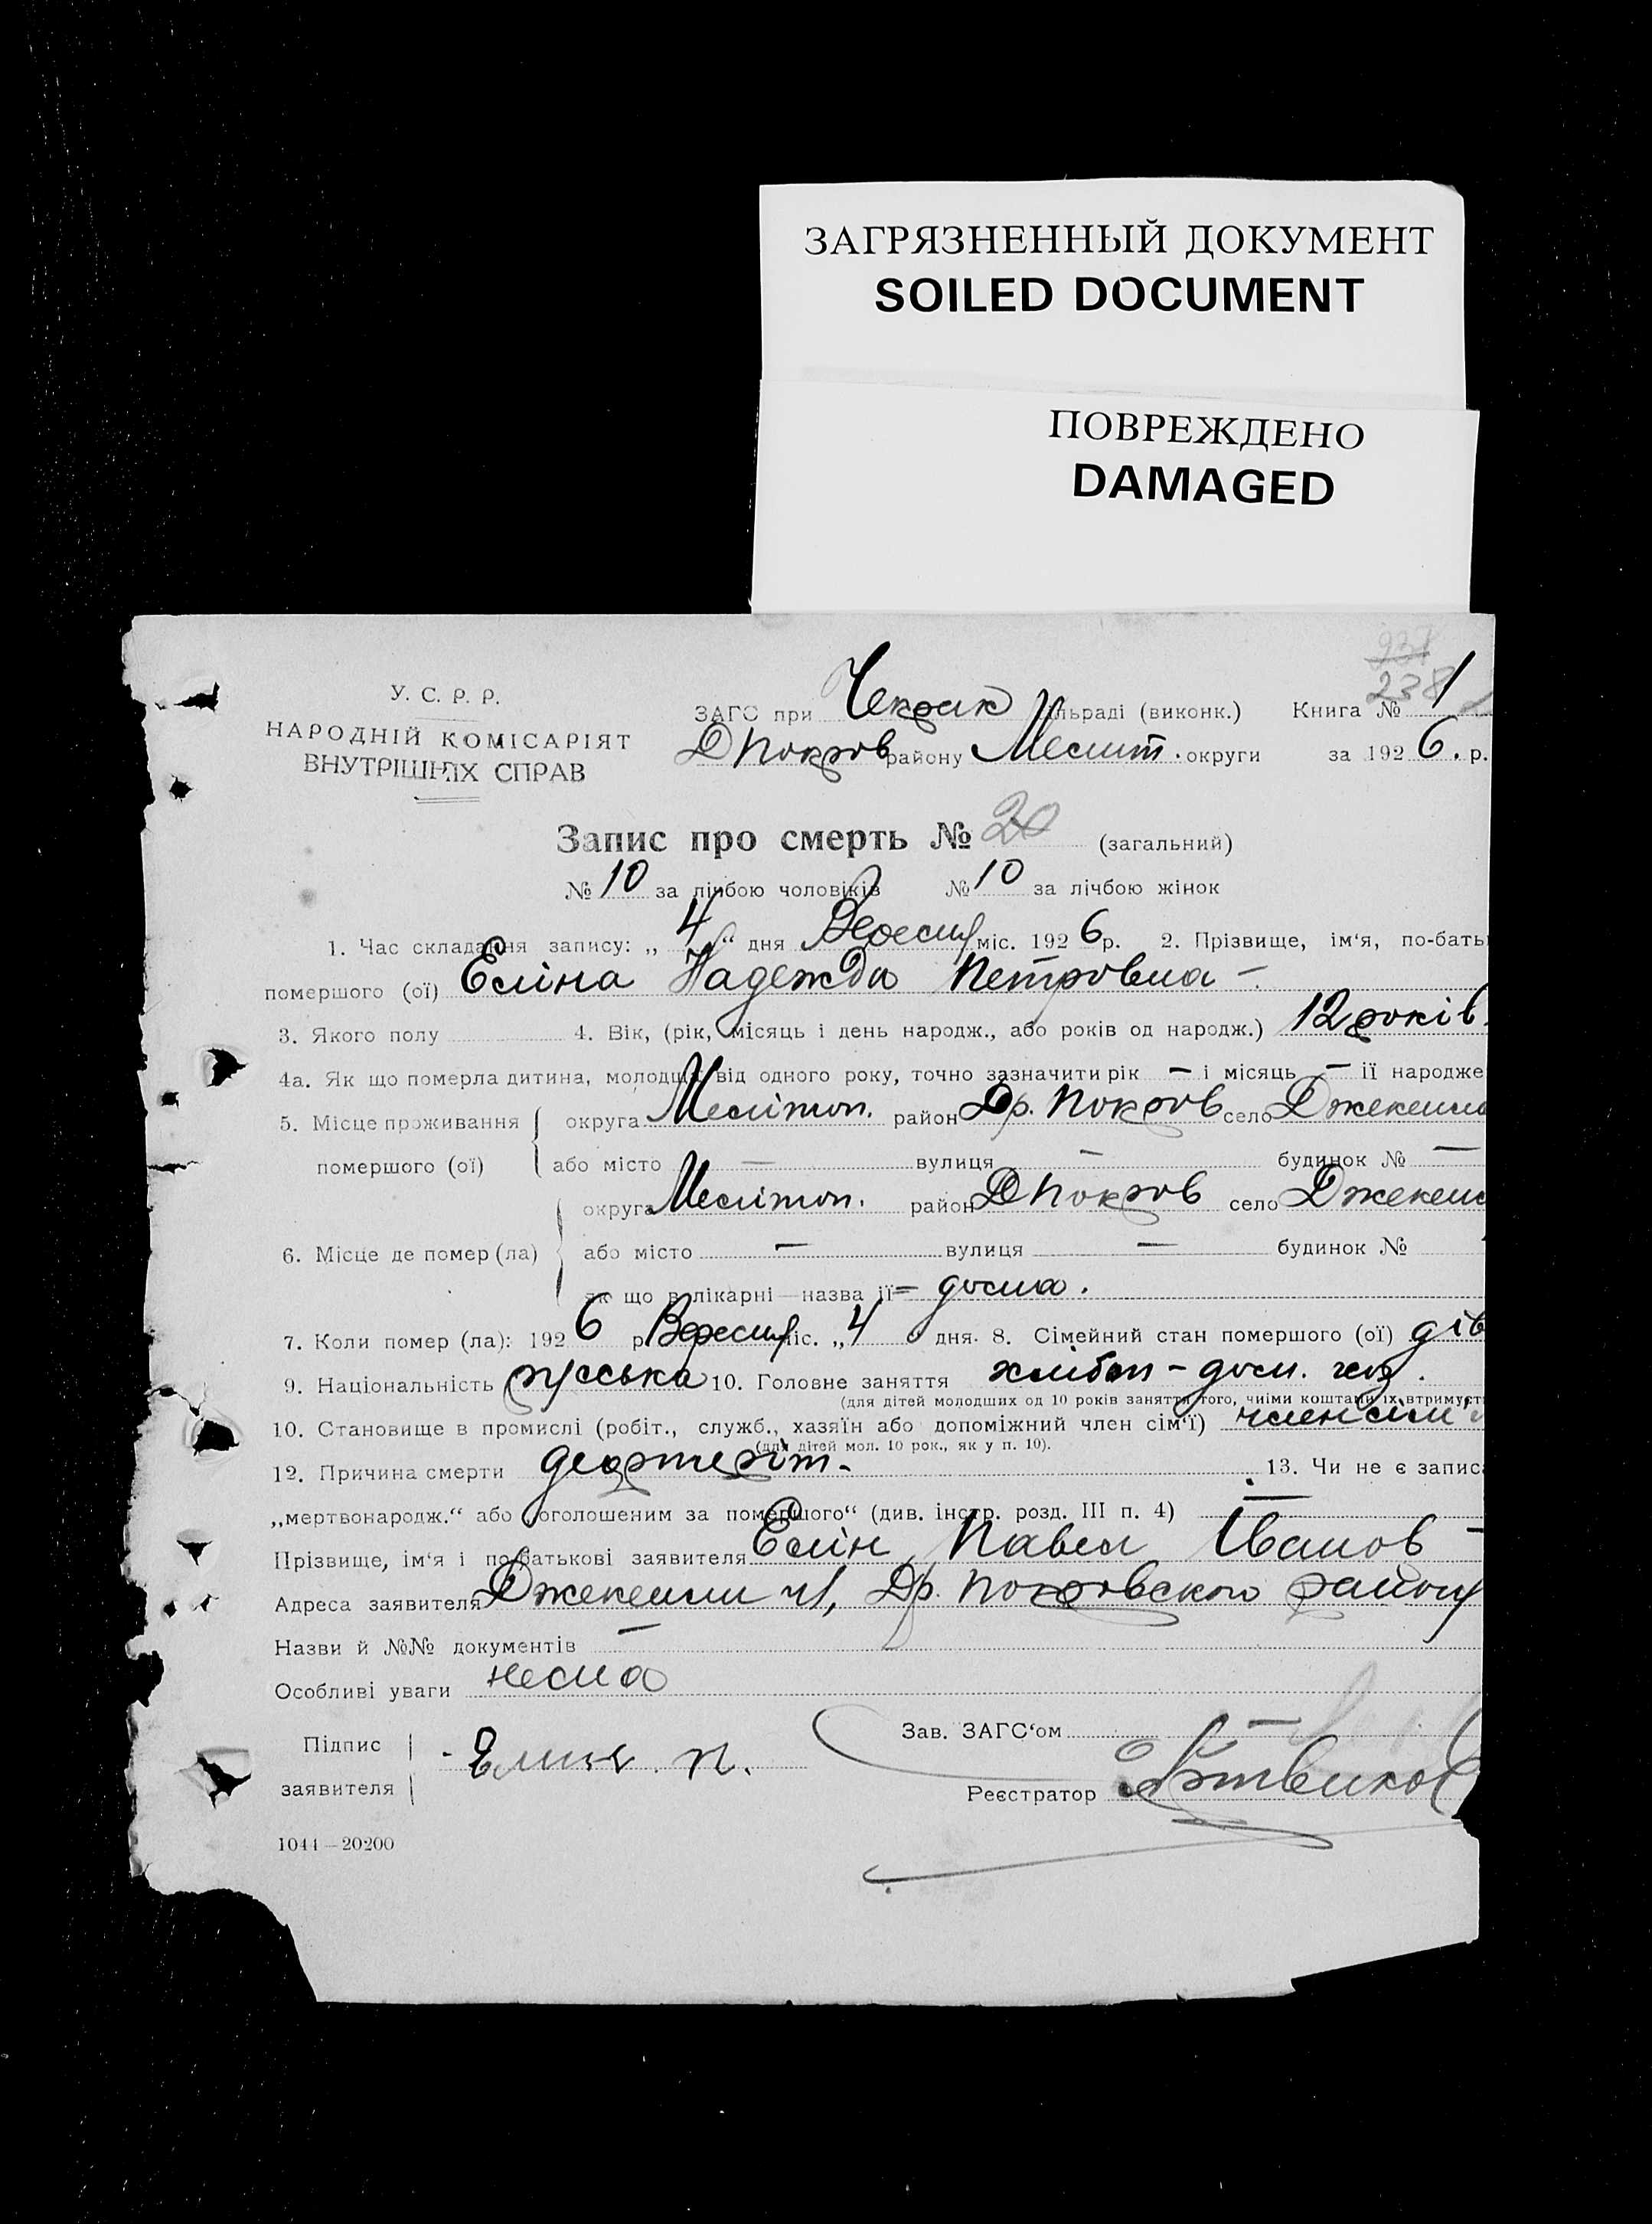 ЗАГРЯЗНЕННЫЙ ДОКУМЕНТ
SOILED DOCUMENT
ПОВРЕЖДЕНО
DAMAGED
237
238
У. С. Р. Р.
НАРОДНІЙ КОМІСАРІЯТ
ВНУТРІШНІХ СПРАВ
ЗАГС при Чекрак сільраді (виконк.) Книга № 1
ДПокров району Меліт. округи за 1926. р.
Запис про смерть № 20 (загальний)
№ 10 за лічбою чоловіків № 10 за лічбою жінок
1. Час складання запису: „4“ дня Вересня міс. 1926 р. 2. Прізвище, ім‘я, по-бать
помершого (ої) Еліна Надежда Петровна —
3. Якого полу 4. Вік, (рік, місяць і день народж., або років од народж.) 12 років.
4а. Як що померла дитина, молодша від одного року, точно зазначити рік — і місяць — її народже
5. Місце проживання округа Мелітоп. район Др. Покров село Джекенли
помершого (ої) або місто — вулиця — будинок № —
округа Мелітоп. район ДПокров село Джекен
6. Місце де помер (ла) або місто — вулиця — будинок №
як що в лікарні—назва її = дома.
7. Коли помер (ла): 1926 р. Вересня міс. „4 дня. 8. Сімейний стан помершого (ої) дів
9. Національність руська 10. Головне заняття хлібоп - дом. гоз.
(для дітей молодших од 10 років заняття того, чиїми коштами їх втримуєть
10. Становище в промислі (робіт., служб., хазяїн або допоміжний член сім‘ї) член сім'ї
(для дітей мол. 10 рок., як у п. 10).
12. Причина смерти дефтеріт. 13. Чи не є запис
„мертвонародж.“ або „оголошеним за помершого“ (див. інстр. розд. III п. 4) —
Прізвище, ім‘я і по батькові заявителя Елін Павел Іванов —
Адреса заявителя Джекенли Др. Покровского району
Назви й №№ документів —
Особливі уваги нема
Зав. ЗАГС‘ом —
Підпис
заявителя
Елин П.
Реєстратор
1044—20200